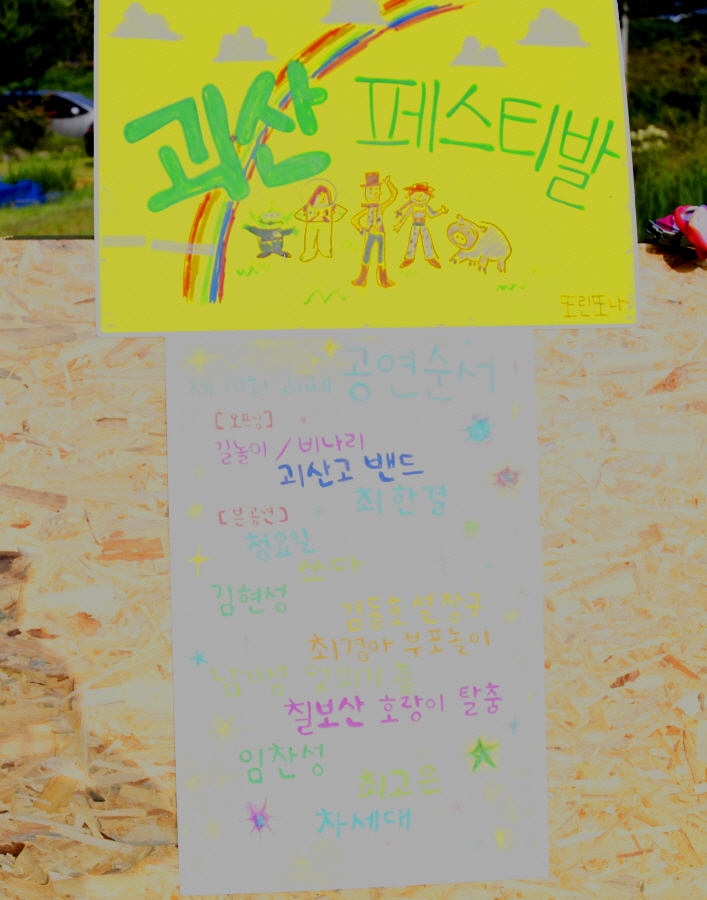 괴산 페스티발
또린또나
제10회 괴페 공연순서
[오프닝]
길놀이 / 비나리
괴산고 밴드
최한결
[본공연]
청요일
쓰다
김현성
김동호 설장구
최경아 부포놀이
칠보산 호랑이 탈춤
임찬성
최고은
차세대